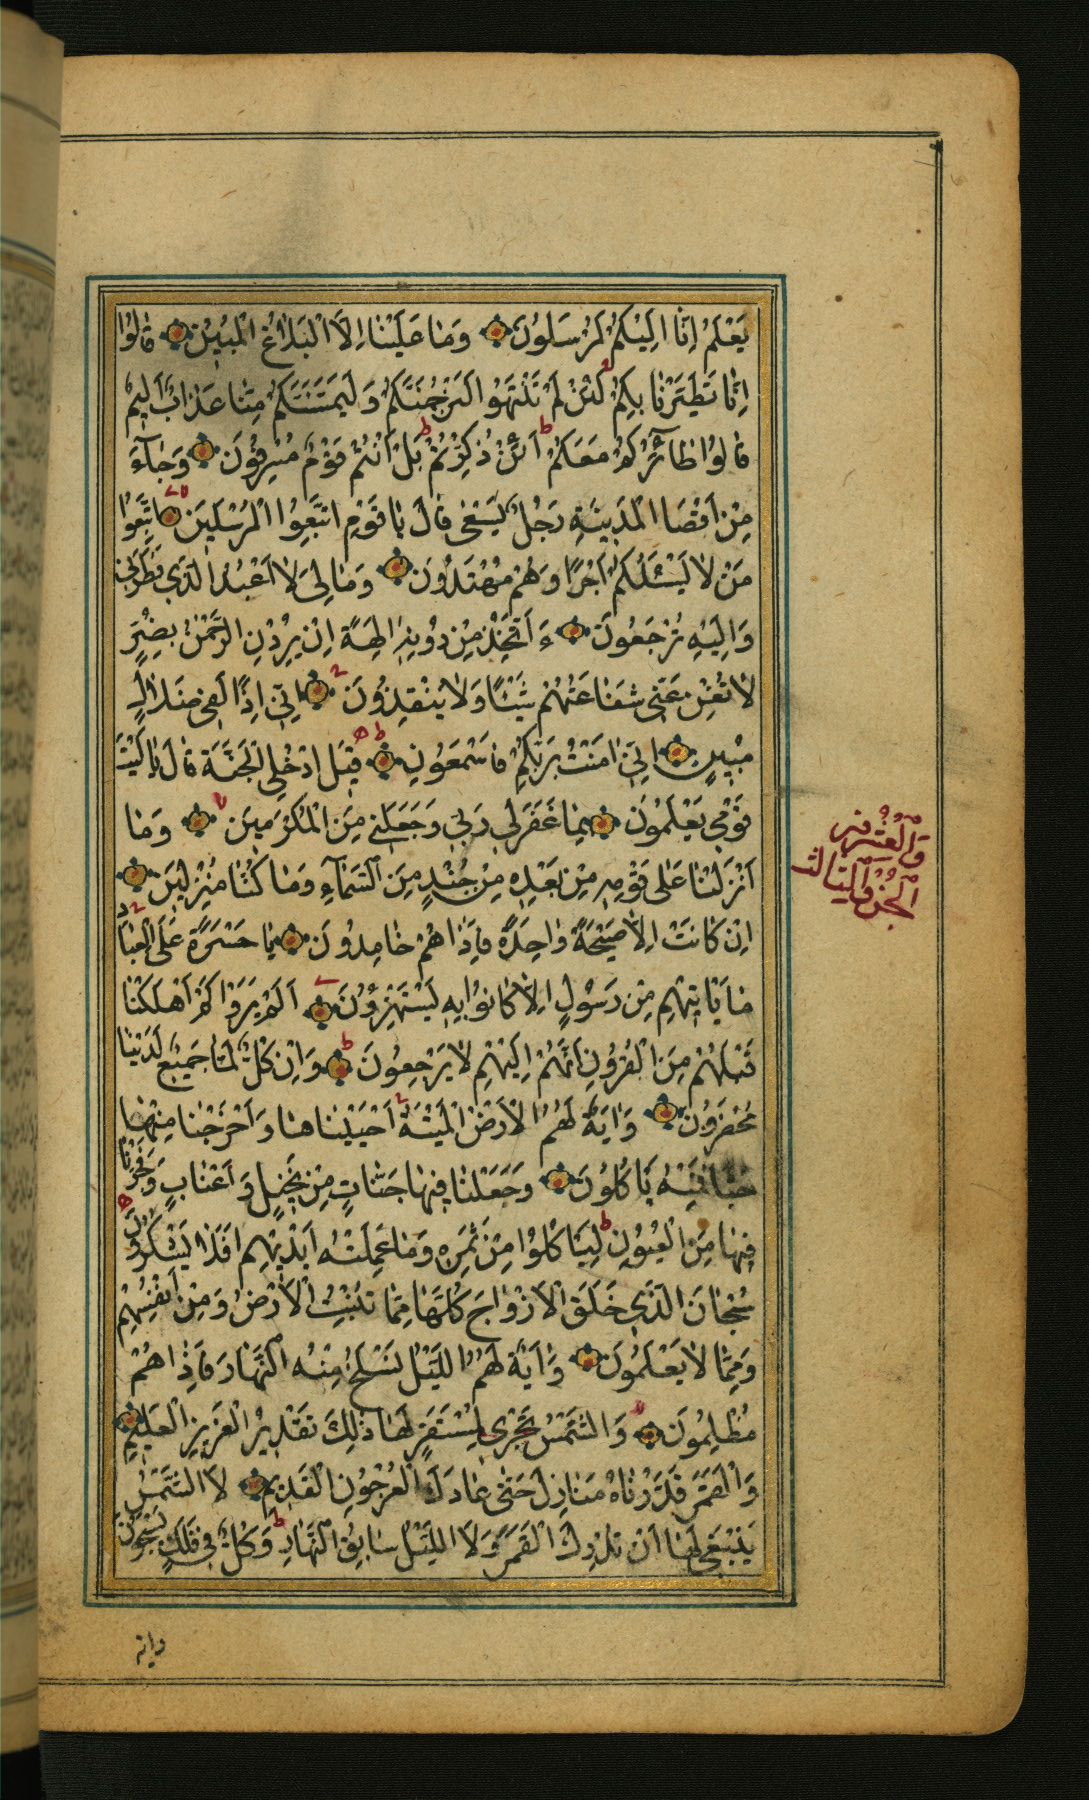 يَعْلَمُ اِنَّا اِلَيْكُمْ لَمُرْسَلُونَ وَمَا عَلَيْنَا اِلَّا الْبَلَاغُ الْمُبِينُ قَالُوا
اِنَّا تَطَيَّرْنَا بِكُمْ لَئِنْ لَمْ تَنْتَهُوا لَنَرْجُمَنَّكُمْ وَلَيَمَسَّنَّكُمْ مِنَّا عَذَابٌ اَلِيمٌ
قَالُوا طَآئِرُكُمْ مَعَكُمْ اَئِنْ ذُكِّرْتُمْ بَلْ اَنْتُمْ قَوْمٌ مُسْرِفُونَ وَجَآءَ
مِنْ اَقْصَا الْمَدِينَةِ رَجُلٌ يَسْعٰى قَالَ يَا قَوْمِ اتَّبِعُوا الْمُرْسَلِينَ اتَّبِعُوا
مَنْ لَا يَسْئَلُكُمْ اَجْرًا وَهُمْ مُهْتَدُونَ وَمَا لِىَ لَا اَعْبُدُ الَّذِى فَطَرَنِى
وَاِلَيْهِ تُرْجَعُونَ ءَاَتَّخِذُ مِنْ دُونِهٖ اٰلِهَةً اِنْ يُرِدْنِ الرَّحْمٰنُ بِضُرٍّ
لَا تُغْنِ عَنِّى شَفَاعَتُهُمْ شَيْئًا وَلَا يُنْقِذُونَ اِنِّى اِذًا لَفِى ضَلَالٍ
مُبِينٍ اِنِّى اٰمَنْتُ بِرَبِّكُمْ فَاسْمَعُونِ قِيلَ ادْخُلِ الْجَنَّةَ قَالَ يَا لَيْتَ
قَوْمِى يَعْلَمُونَ بِمَا غَفَرَ لِى رَبِّى وَجَعَلَنِى مِنَ الْمُكْرَمِينَ وَمَا
اَنْزَلْنَا عَلٰى قَوْمِهٖ مِنْ بَعْدِهٖ مِنْ جُنْدٍ مِنَ السَّمَآءِ وَمَا كُنَّا مُنْزِلِينَ
اِنْ كَانَتْ اِلَّا صَيْحَةً وَاحِدَةً فَاِذَا هُمْ خَامِدُونَ يَا حَسْرَةً عَلَى الْعِبَادِ
مَا يَاْتِيهِمْ مِنْ رَسُولٍ اِلَّا كَانُوا بِهٖ يَسْتَهْزِؤُنَ اَلَمْ يَرَوْا كَمْ اَهْلَكْنَا
قَبْلَهُمْ مِنَ الْقُرُونِ اَنَّهُمْ اِلَيْهِمْ لَا يَرْجِعُونَ وَاِنْ كُلٌّ لَمَّا جَمِيعٌ لَدَيْنَا
مُحْضَرُونَ وَاٰيَةٌ لَهُمُ الْاَرْضُ الْمَيْتَةُ اَحْيَيْنَاهَا وَاَخْرَجْنَا مِنْهَا
حَبًّا فَمِنْهُ يَاْكُلُونَ وَجَعَلْنَا فِيهَا جَنَّاتٍ مِنْ نَخِيلٍ وَاَعْنَابٍ وَفَجَّرْنَا
فِيهَا مِنَ الْعُيُونِ لِيَاْكُلُوا مِنْ ثَمَرِهٖ وَمَا عَمِلَتْهُ اَيْدِيهِمْ اَفَلَا يَشْكُرُونَ
سُبْحَانَ الَّذِى خَلَقَ الْاَزْوَاجَ كُلَّهَا مِمَّا تُنْبِتُ الْاَرْضُ وَمِنْ اَنْفُسِهِمْ
وَمِمَّا لَا يَعْلَمُونَ وَاٰيَةٌ لَهُمُ اللَّيْلُ نَسْلَخُ مِنْهُ النَّهَارَ فَاِذَا هُمْ
مُظْلِمُونَ وَالشَّمْسُ تَجْرِى لِمُسْتَقَرٍّ لَهَا ذٰلِكَ تَقْدِيرُ الْعَزِيزِ الْعَلِيمِ
وَالْقَمَرَ قَدَّرْنَاهُ مَنَازِلَ حَتّٰى عَادَ كَالْعُرْجُونِ الْقَدِيمِ لَا الشَّمْسُ
يَنْبَغِى لَهَا اَنْ تُدْرِكَ الْقَمَرَ وَلَا اللَّيْلُ سَابِقُ النَّهَارِ وَكُلٌّ فِى فَلَكٍ يَسْبَحُونَ
واية